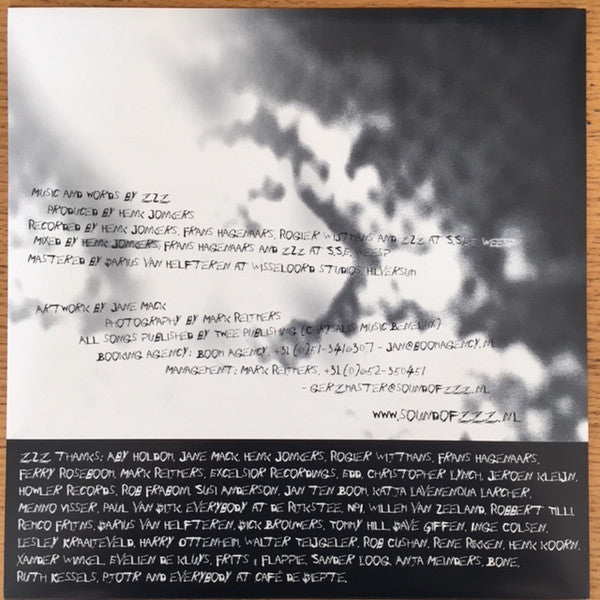 MUSIC AND WORDS BY ZZZ
PRODUCED BY HENK JONKERS
RECORDED BY HENK JONKERS, FRANS HAGENAARS, ROGIER WIJTMANS AND ZZZ AT S.S.E. WEESP
MIXED BY HENK JONKERS, FRANS HAGENAARS AND ZZZ AT S.S.E. WEESP
MASTERED BY DARIUS VAN HELFTEREN AT WISSELOORD STUDIOS, HILVERSUM
ARTWORK BY JANE MACK
PHOTOGRAPHY BY MARK REITMERS
ALL SONGS PUBLISHED BY TWEE PUBLISHING (CHRYSALIS MUSIC BENELUX)
BOOKING AGENCY: BOOM AGENCY, - JAN@BOOMAGENCY.NL
MANAGEMENT: MARK REITMERS, +31(0)652-350451
- GERZMASTER@SOUNDOFZZZ.NL
WWW.SOUNDOFZZZ.NL
ZZZ THANKS: ABY HOLDOM, JANE MACK, HENK JONKERS, ROGIER WIJTMANS, FRANS HAGENAARS,
FERRY ROSEBOOM, MARK REITMERS, EXCELSIOR RECORDINGS, EDD, CHRISTOPHER LYNCH, JEROEN KLEIJN,
HOWLER RECORDS, ROB FRABONI, SUSI ANDERSON, JAN TEN BOOM, KATJA LARCHER,
MENNO VISSER, PAUL VAN DIJK, EVERYBODY AT DE RIJKSTEE, NPI, WILLEM VAN ZEELAND, ROBBERT TILLI,
REMCO FRITNS, DARIUS VAN HELFTEREN, DICK BROUWERS, TOMMY HILL, DAVE GIFFEN, INGE COLSEN,
LESLEY KRAAITEVELD, HARRY OTTENHEIM, WALTER TEIJGELER, ROB CUSHAN, RENE REKKEN, HENK KOORN,
XANDER WINKEL, EVELIEN DE KLUYS, FRITS & FLAPPIE, SANDER LOOG, ANJA MEINDERS, BONE,
RUTH KESSELS, PJOTR AND EVERYBODY AT CAFÉ DE DIEPTE.